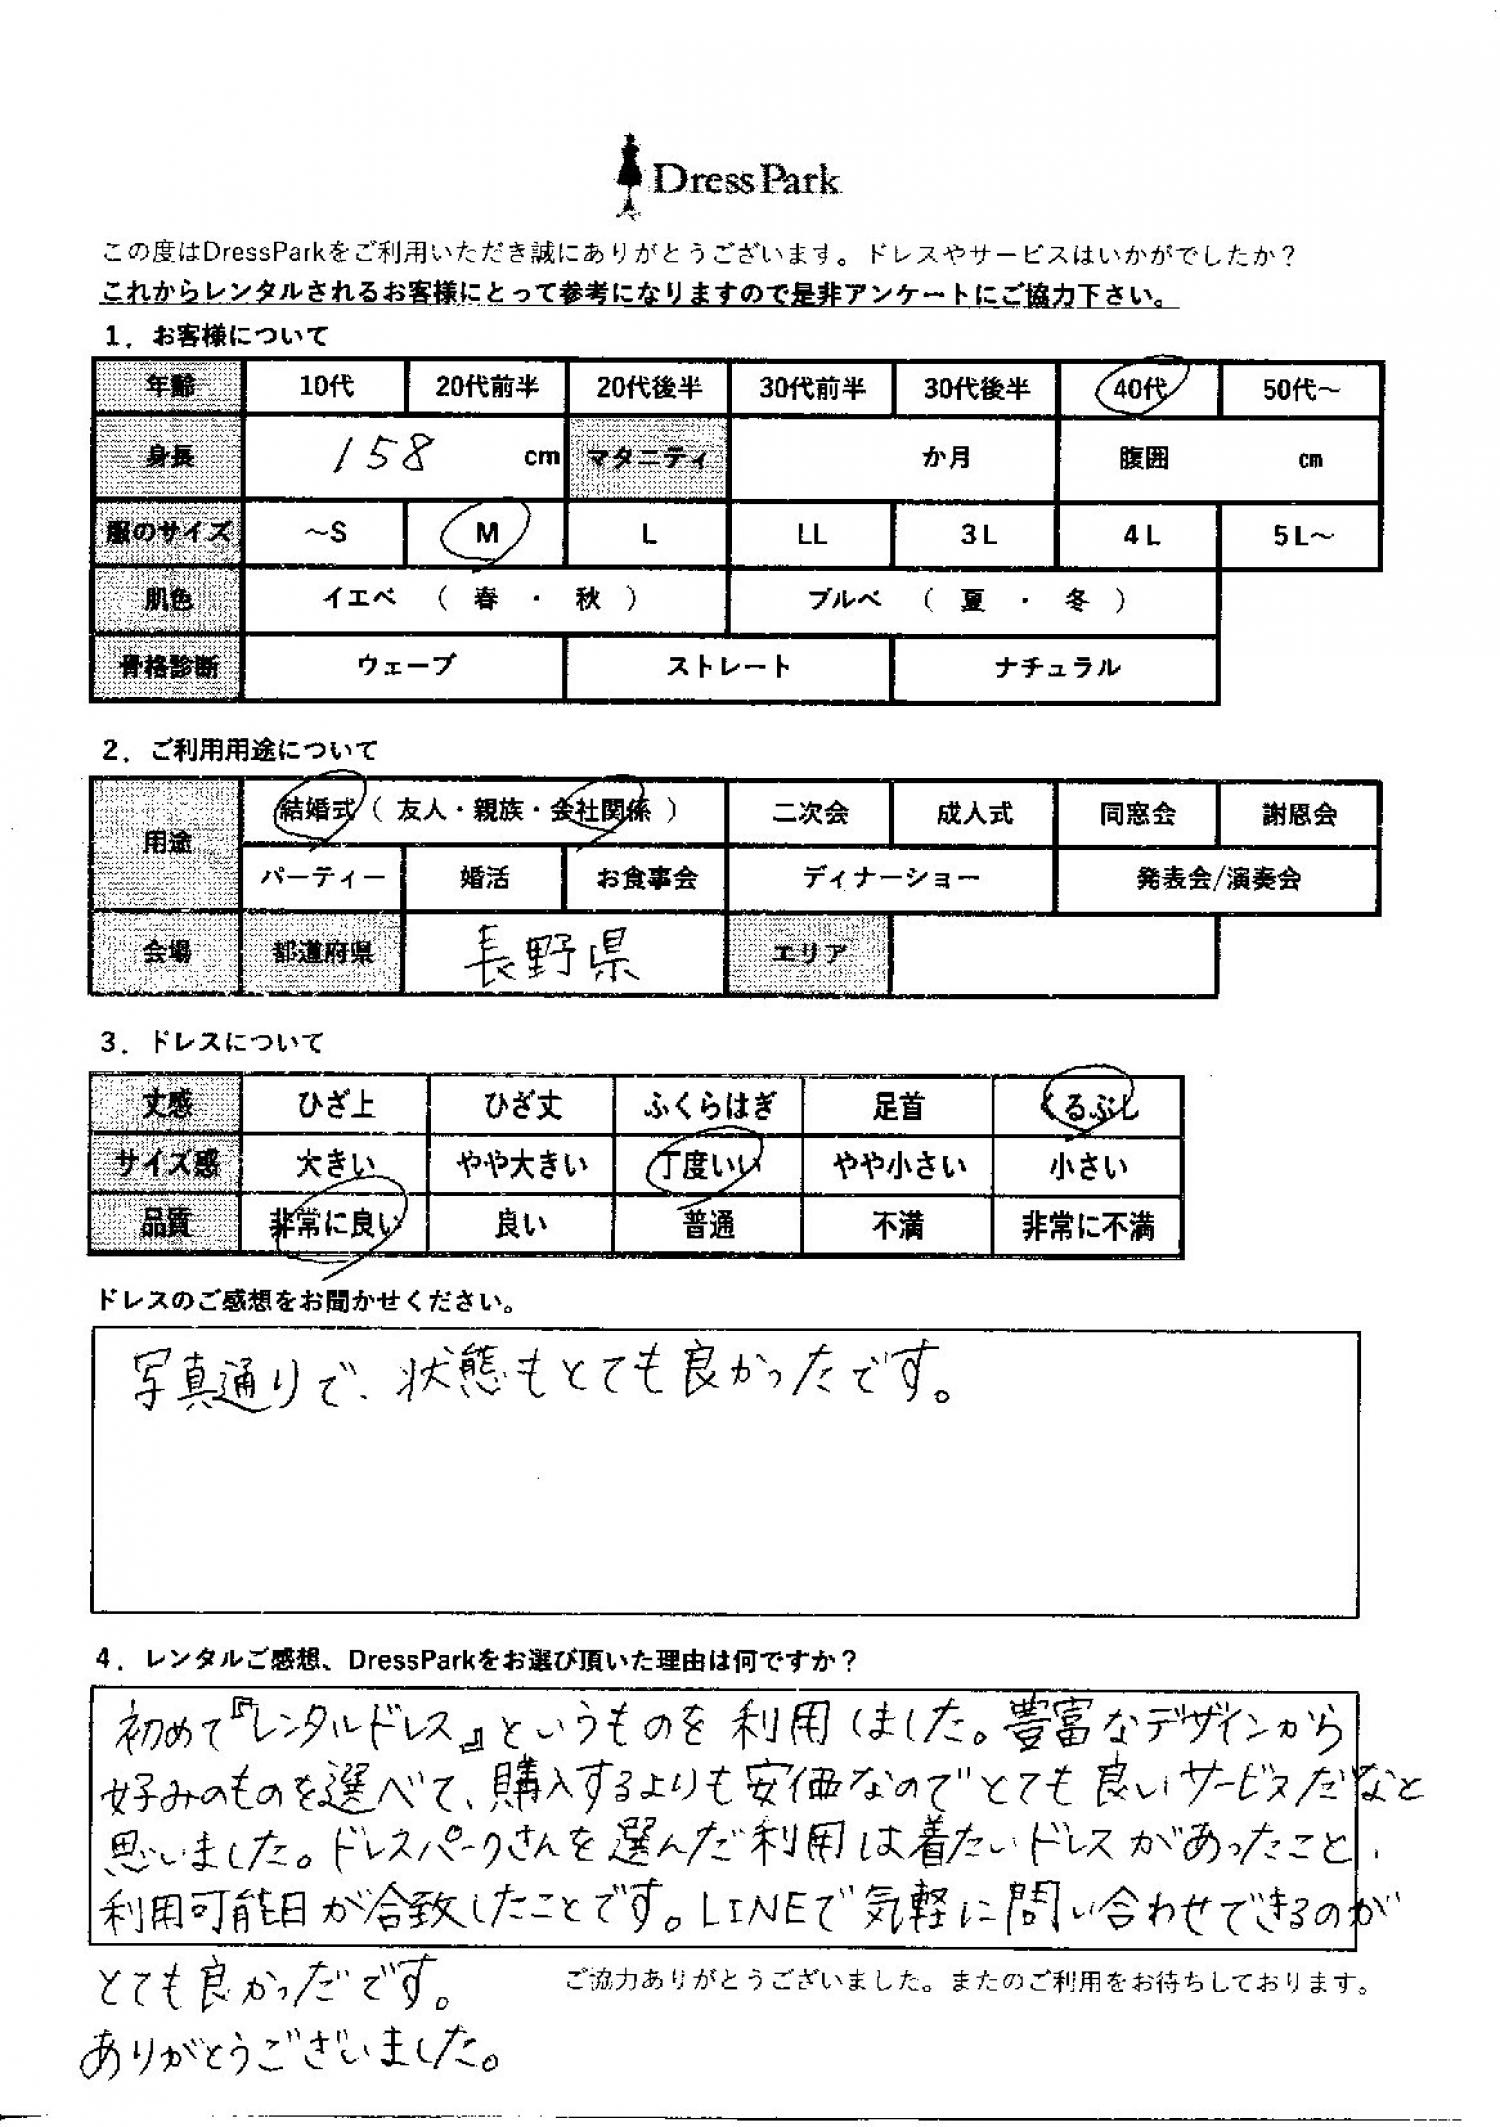 DressPark
この度はDressParkをご利用いただき誠にありがとうございます。ドレスやサービスはいかがでしたか？
これからレンタルされるお客様にとって参考になりますので是非アンケートにご協力下さい。
1．お客様について
年齢 10代 20代前半 20代後半 30代前半 30代後半 40代 50代～
身長 158 cm マタニティ か月 腹囲 cm
服のサイズ ～S M L LL 3L 4L 5L～
肌色 イエベ （ 春 ・ 秋 ） ブルベ （ 夏 ・ 冬 ）
骨格診断 ウェーブ ストレート ナチュラル
2．ご利用用途について
用途 結婚式（ 友人・親族・会社関係 ） 二次会 成人式 同窓会 謝恩会
パーティー 婚活 お食事会 ディナーショー 発表会/演奏会
会場 都道府県 長野県 エリア
3．ドレスについて
丈感 ひざ上 ひざ丈 ふくらはぎ 足首 くるぶし
サイズ感 大きい やや大きい 丁度いい やや小さい 小さい
品質 非常に良い 良い 普通 不満 非常に不満
ドレスのご感想をお聞かせください。
写真通りで、状態もとても良かったです。
4．レンタルご感想、DressParkをお選び頂いた理由は何ですか？
初めて『レンタルドレス』というものを利用しました。豊富なデザインから
好みのものを選べて、購入するよりも安価なのでとても良いサービスだなと
思いました。ドレスパークさんを選んだ利用は着たいドレスがあったこと、
利用可能日が合致したことです。LINEで気軽に問い合わせできるのが
とても良かっだです。
ご協力ありがとうございました。またのご利用をお待ちしております。
ありがとうございました。